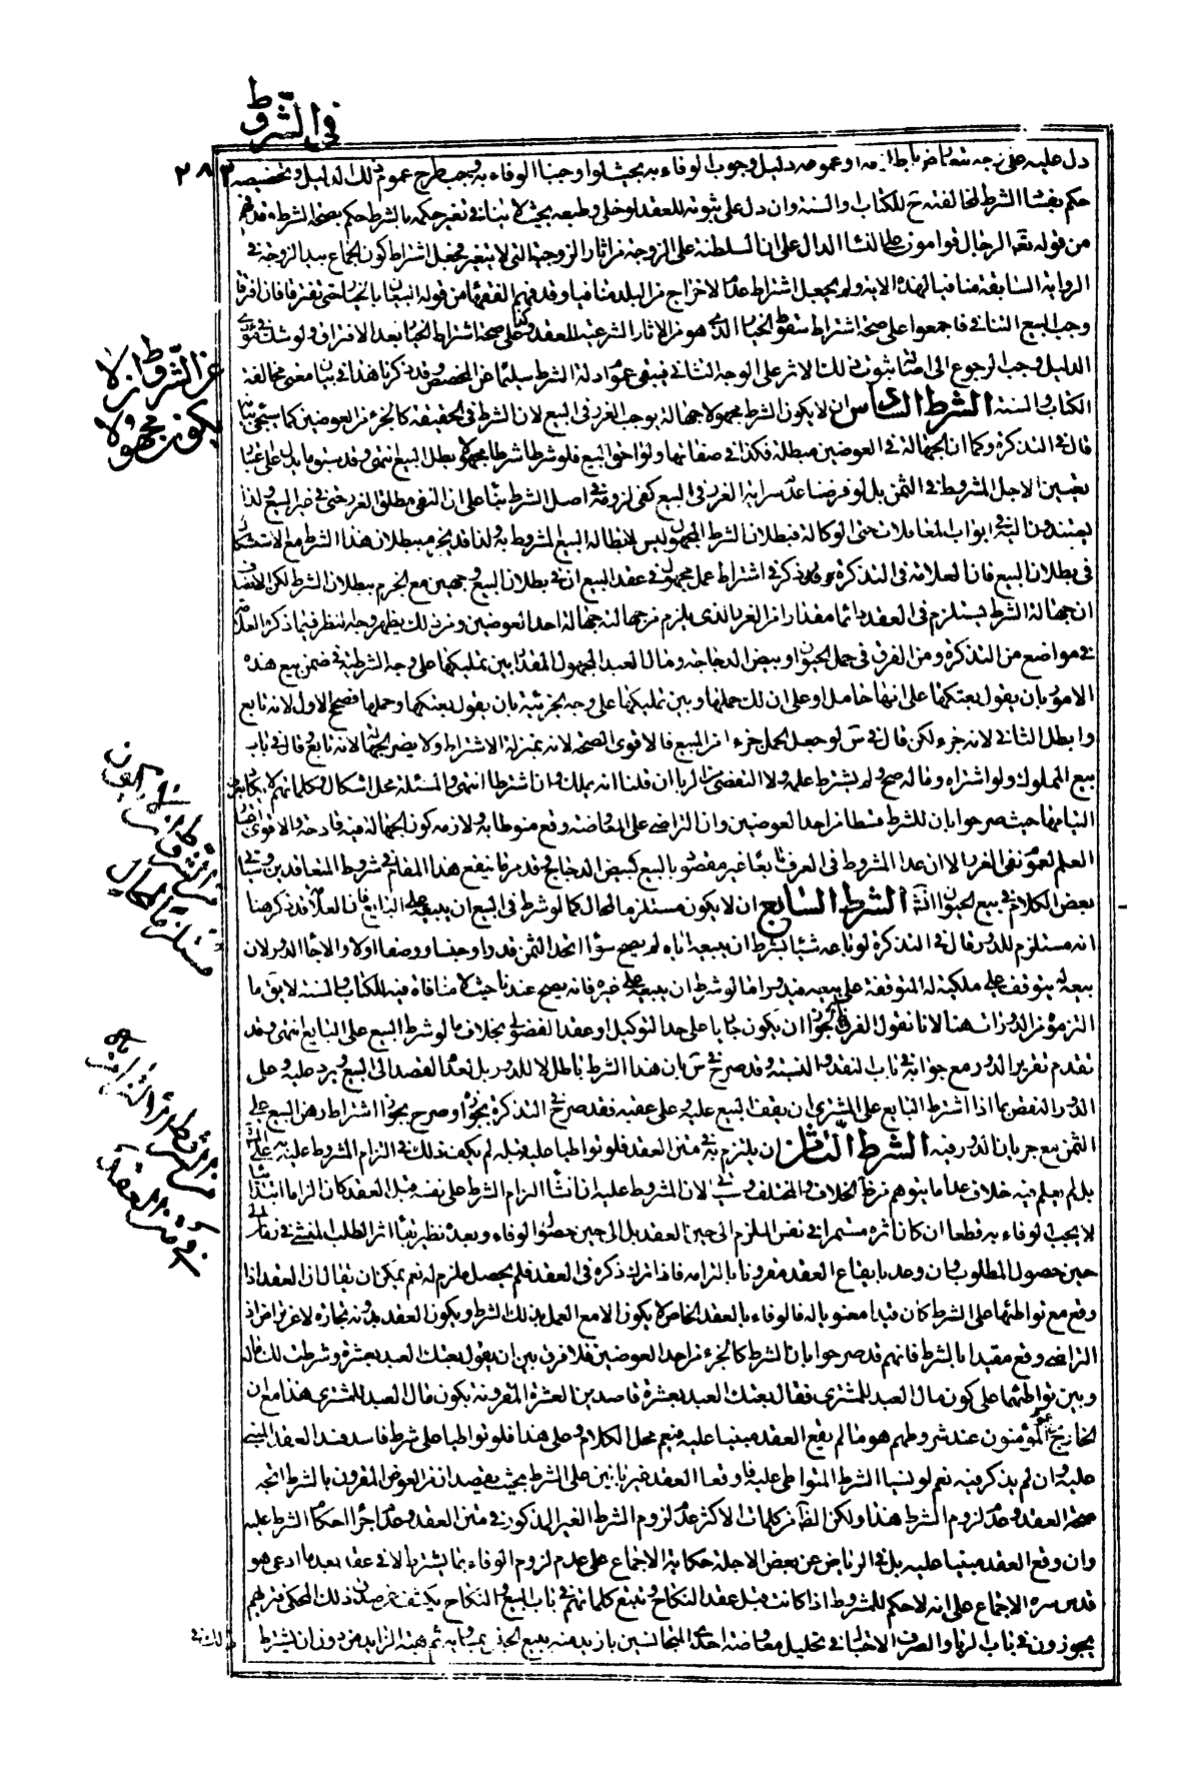 في الشروط
٢٨٣
دل عليه على وجه او عمومه دليل وجوب الوفاء به بحيث لو اوجبنا الوفاء به وجب طرح عموم ذلك الدليل وتخصيصه
حكم بفساد الشرط لمخالفته ح للكتاب والسنة وان دل على ثبوته للعقد لو خلي وطبعه بحيث لا ينافي تغير حكمه بالشرط حكم بصحة الشرط وقد فهم
من قوله تعالى الرجال قوامون على النساء الدال على ان السلطنة على الزوجة من اثار الزوجية التي لا تتغير فجعل اشتراط كون الجماع بيد الزوجة في
الرواية السابقة منافيا لهذه الاية ولم يجعل اشتراط عدم الاخراج من البلد منافيا وقد فهم الفقهاء من قوله البيعان بالخيار حتى يفترقا فاذا افترقا
وجب البيع الثاني فاجمعوا على صحة اشتراط سقوط الخيار الذي هو من الاثار الشرعية للعقد وكذا على صحة اشتراط الخيار بعد الافتراق ولو شك في مؤدى
الدليل وجب الرجوع الى اصالة ثبوت ذلك الاثر على الوجه الثاني فيبقى عموم ادلة الشرط سليما عن المخصص وقد ذكرنا هذا في بيان معنى مخالفة
الكتاب والسنة الشرط السادس ان لا يكون الشرط مجهولا جهالة يوجب الغرر في البيع لان الشرط في الحقيقة كالجزء من العوضين كما سيجئ بيانه
قال في التذكرة وكما ان الجهالة في العوضين مبطلة فكذا في صفاتهما ولواحق المبيع فلو شرطا شرطا مجهولا بطل البيع انتهى وقد سبق ما يدل على اعتبار
تعيين الاجل المشروط في الثمن بل لو فرضنا عدم سراية الغرر في البيع كفى لزومه في اصل الشرط بناء على ان المنفي مطلق الغرر حتى في غير البيع ولذا
يستندون اليه في ابواب المعاملات حتى الوكالة فبطلان الشرط المجهول ليس لابطاله البيع المشروط به ولذا قد يجزم ببطلان هذا الشرط مع الاستشكال
في بطلان البيع فان العلامة في التذكرة ذكر في اشتراط عمل مجهول في عقد البيع ان في بطلان البيع وجهين مع الجزم ببطلان الشرط لكن الانصاف
ان جهالة الشرط يستلزم في العقد دائما مقدارا من الغرر الذي يلزم من جهالته جهالة احد العوضين ومن ذلك يظهر وجه النظر فيما ذكره العلامة
في مواضع من التذكرة من الفرق في حمل الحيوان وبيض الدجاجة ومال العبد المجهول المقدار بين تمليكها على وجه الشرطية في ضمن بيع هذه
الامور بان يقول بعتكها على انها حامل او على ان لك حملها وبين تمليكها على وجه الجزئية بان يقول بعتكها وحملها فصحح الاول لانه تابع
وابطل الثاني لانه جزء لكن قال في س لو جعل الحمل جزء من المبيع فالاقوى الصحة لانه بمنزلة الاشتراط ولا يضر الجهالة لانه تابع وقال في باب
بيع المملوك ولو اشتراه وماله صح ولم يشترط علمه ولا التفصي من الربا ان قلنا انه يملك وان اشترطا انتهى والمسئلة محل اشكال وكلماتهم لا يكاد يعرف
التيامها حيث صرحوا بان للشرط قسطا من احد العوضين وان التراضي على المعاوضة وقع منوطا به ولازمه كون الجهالة فيه قادحة والاقوى اعتبار
العلم لعموم نفي الغرر الا ان عد المشروط في العرف تابعا غير مقصود بالبيع كبيض الدجاج وقد مر ما ينفع هذا المقام في شروط المتعاقدين وسيأتي
بعض الكلام في بيع الحيوان انشاء الله الشرط السابع ان لا يكون مستلزما لمحال كما لو شرط في البيع ان يبيعه على البايع فان العلامة قد ذكر هنا
انه مستلزم للدور قال في التذكرة لو باعه شيئا بشرط ان يبيعه اياه لم يصح سواء اتحد الثمن قدرا وجنسا ووصفا اولا والا جاء الدور لان
بيعه له يتوقف على ملكيته له المتوقفة على بيعه فيدور اما لو شرط ان يبيعه على غيره فانه يصح عندنا حيث لا منافاة فيه للكتاب والسنة لا يق ما
التزموه من الدور ات هنا لانا نقول الفرق ظاهر لجواز ان يكون جاريا على حد التوكيل او عقد الفضولي بخلاف ما لو شرط البيع على البايع انتهى وقد
تقدم تقرير الدور مع جوابه في باب النقد والنسية وقد صرح في س بان هذا الشرط باطل لا للدور بل لعدم القصد الى البيع ويرد عليه وعلى
الدور النقض بما اذا اشترط البايع على المشتري ان يقف المبيع عليه وعلى عقبه فقد صرح في التذكرة بجوازه وصرح بجواز اشتراط رهن المبيع على
الثمن مع جريان الدور فيه الشرط الثامن ان يلتزم به في متن العقد فلو تواطيا عليه قبله لم يكف ذلك في التزام المشروط عليه به على المشهور
بل لم يعلم فيه خلاف عدا ما يتوهم من ظاهر الخلاف والمختلف وسيأتي لان المشروط عليه ان انشأ الزام الشرط على نفسه قبل العقد كان الزاما ابتدائيا
لا يجب الوفاء به قطعا وان كان اثره مستمرا في نفس الملزم الى حين العقد بل الى حين حصول الوفاء وبعده نظير بقاء اثر الطلب المنشئ في زمان الى
حين حصول المطلوب وان وعد بايقاع العقد مقرونا بالتزامه فاذا ترك ذكره في العقد فلم يحصل ملزم له نعم يمكن ان يقال ان العقد اذا
وقع مع تواطئهما على الشرط كان قيدا معنويا له فالوفاء بالعقد الخاص لا يكون الا مع العمل بذلك الشرط ويكون العقد بدونه تجارة لا عن تراض اذ
التراضي وقع مقيدا بالشرط فانهم قد صرحوا بان الشرط كالجزء من احد العوضين فلا فرق بين ان يقول بعتك العبد بعشرة وشرطت لك ماله
وبين تواطئهما على كون مال العبد للمشتري فقال بعتك العبد بعشرة قاصدين العشرة المقرونة بكون مال العبد للمشتري هذا مع ان
الخارج من عموم المؤمنون عند شروطهم هو ما لم يقع العقد مبنيا عليه فيعم محل الكلام وعلى هذا فلو تواطيا على شرط فاسد فسد العقد المبني
عليه وان لم يذكر فيه نعم لو نسيا الشرط المتواطى عليه فاوقعا العقد غير بانيين على الشرط بحيث يقصدان من العوض المقرون بالشرط اتجه
صحة العقد وعدم لزوم الشرط هذا ولكن الظاهر من كلمات الاكثر عدم لزوم الشرط الغير المذكور في متن العقد وعدم اجراء احكام الشرط عليه
وان وقع العقد مبنيا عليه بل في الرياض عن بعض الاجلة حكاية الاجماع على عدم لزوم الوفاء بما يشترط لا في عقد بعد ما ادعى هو
قدس سره الاجماع على انه لا حكم للشروط اذا كانت قبل عقد النكاح وتتبع كلماتهم في باب البيع والنكاح يكشف عن صدق ذلك المحكي فتريهم
يجوزون في باب الربا والصرف الاحتيال في تحليل معاوضة احد المتجانسين بازيد منه ببيع الجنس بمساويه ثم هبة الزايد من دون ان يشترط
ذلك في
من الشروط ان لا يكون مجهولا
من الشروط ان لا يكون مستلزما لمحال
من الشروط ان يلتزم به في متن العقد